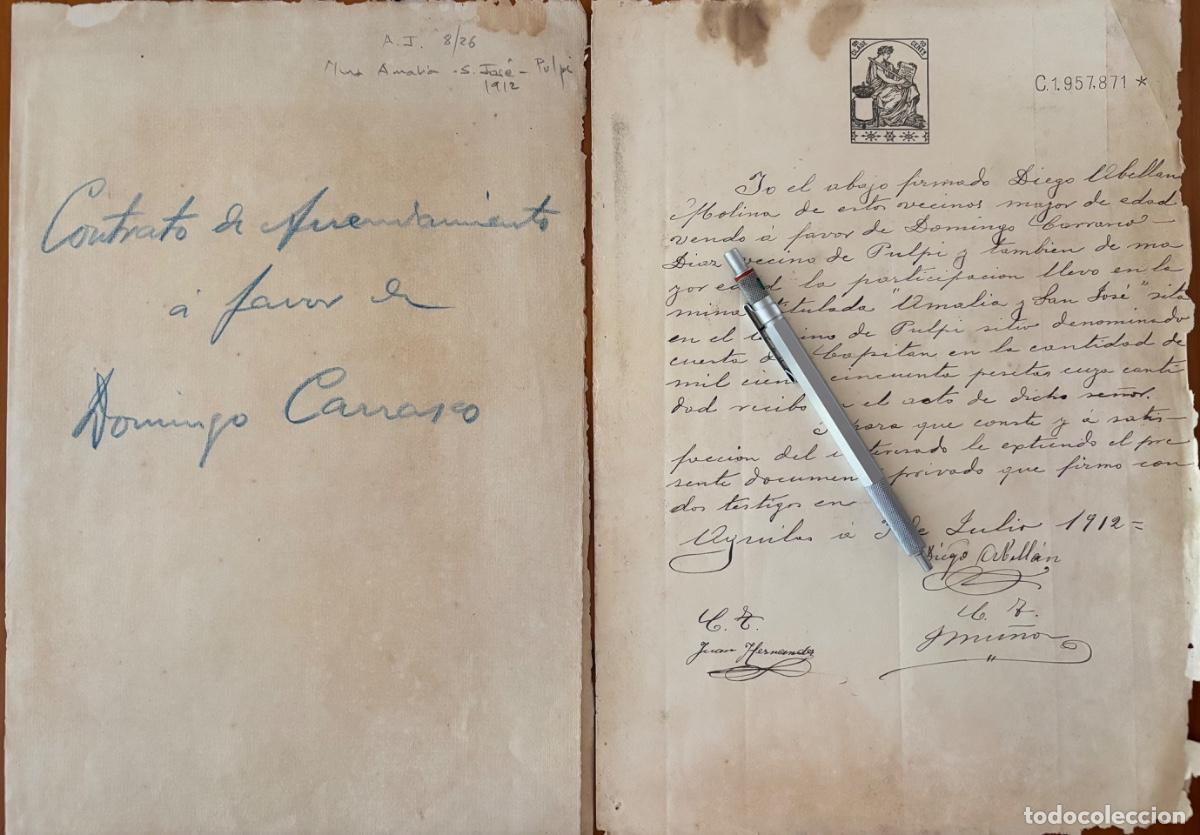 A. J. 8/26
Mina Amalia - S. José - Pulpi
1912
Contrato de Arrendamiento
á favor de
Domingo Carrasco
CLASE
C.1.957.871 *
Yo el abajo firmado Diego Abellan
Molina de estos vecinos mayor de edad
vendo á favor de Domingo Carrasco
Diaz vecino de Pulpi y tambien de ma
yor ed d la participacion llevo en la
mina titulada "Amalia y San José" sita
en el ino de Pulpi sitio denominado
cuesta de Capitan en la cantidad de
mil cien cincuenta pesetas cuya canti
dad recibo n el acto de dicho señor.
para que conste y á satis-
faccion del i teresado le extiendo el pre
sente document privado que firmo con
dos testigos en
Aguilas á 3 de Julio 1912 =
Diego Abellán
C. T.
C. T.
Juan Hernandez
J Muño
todocoleccion